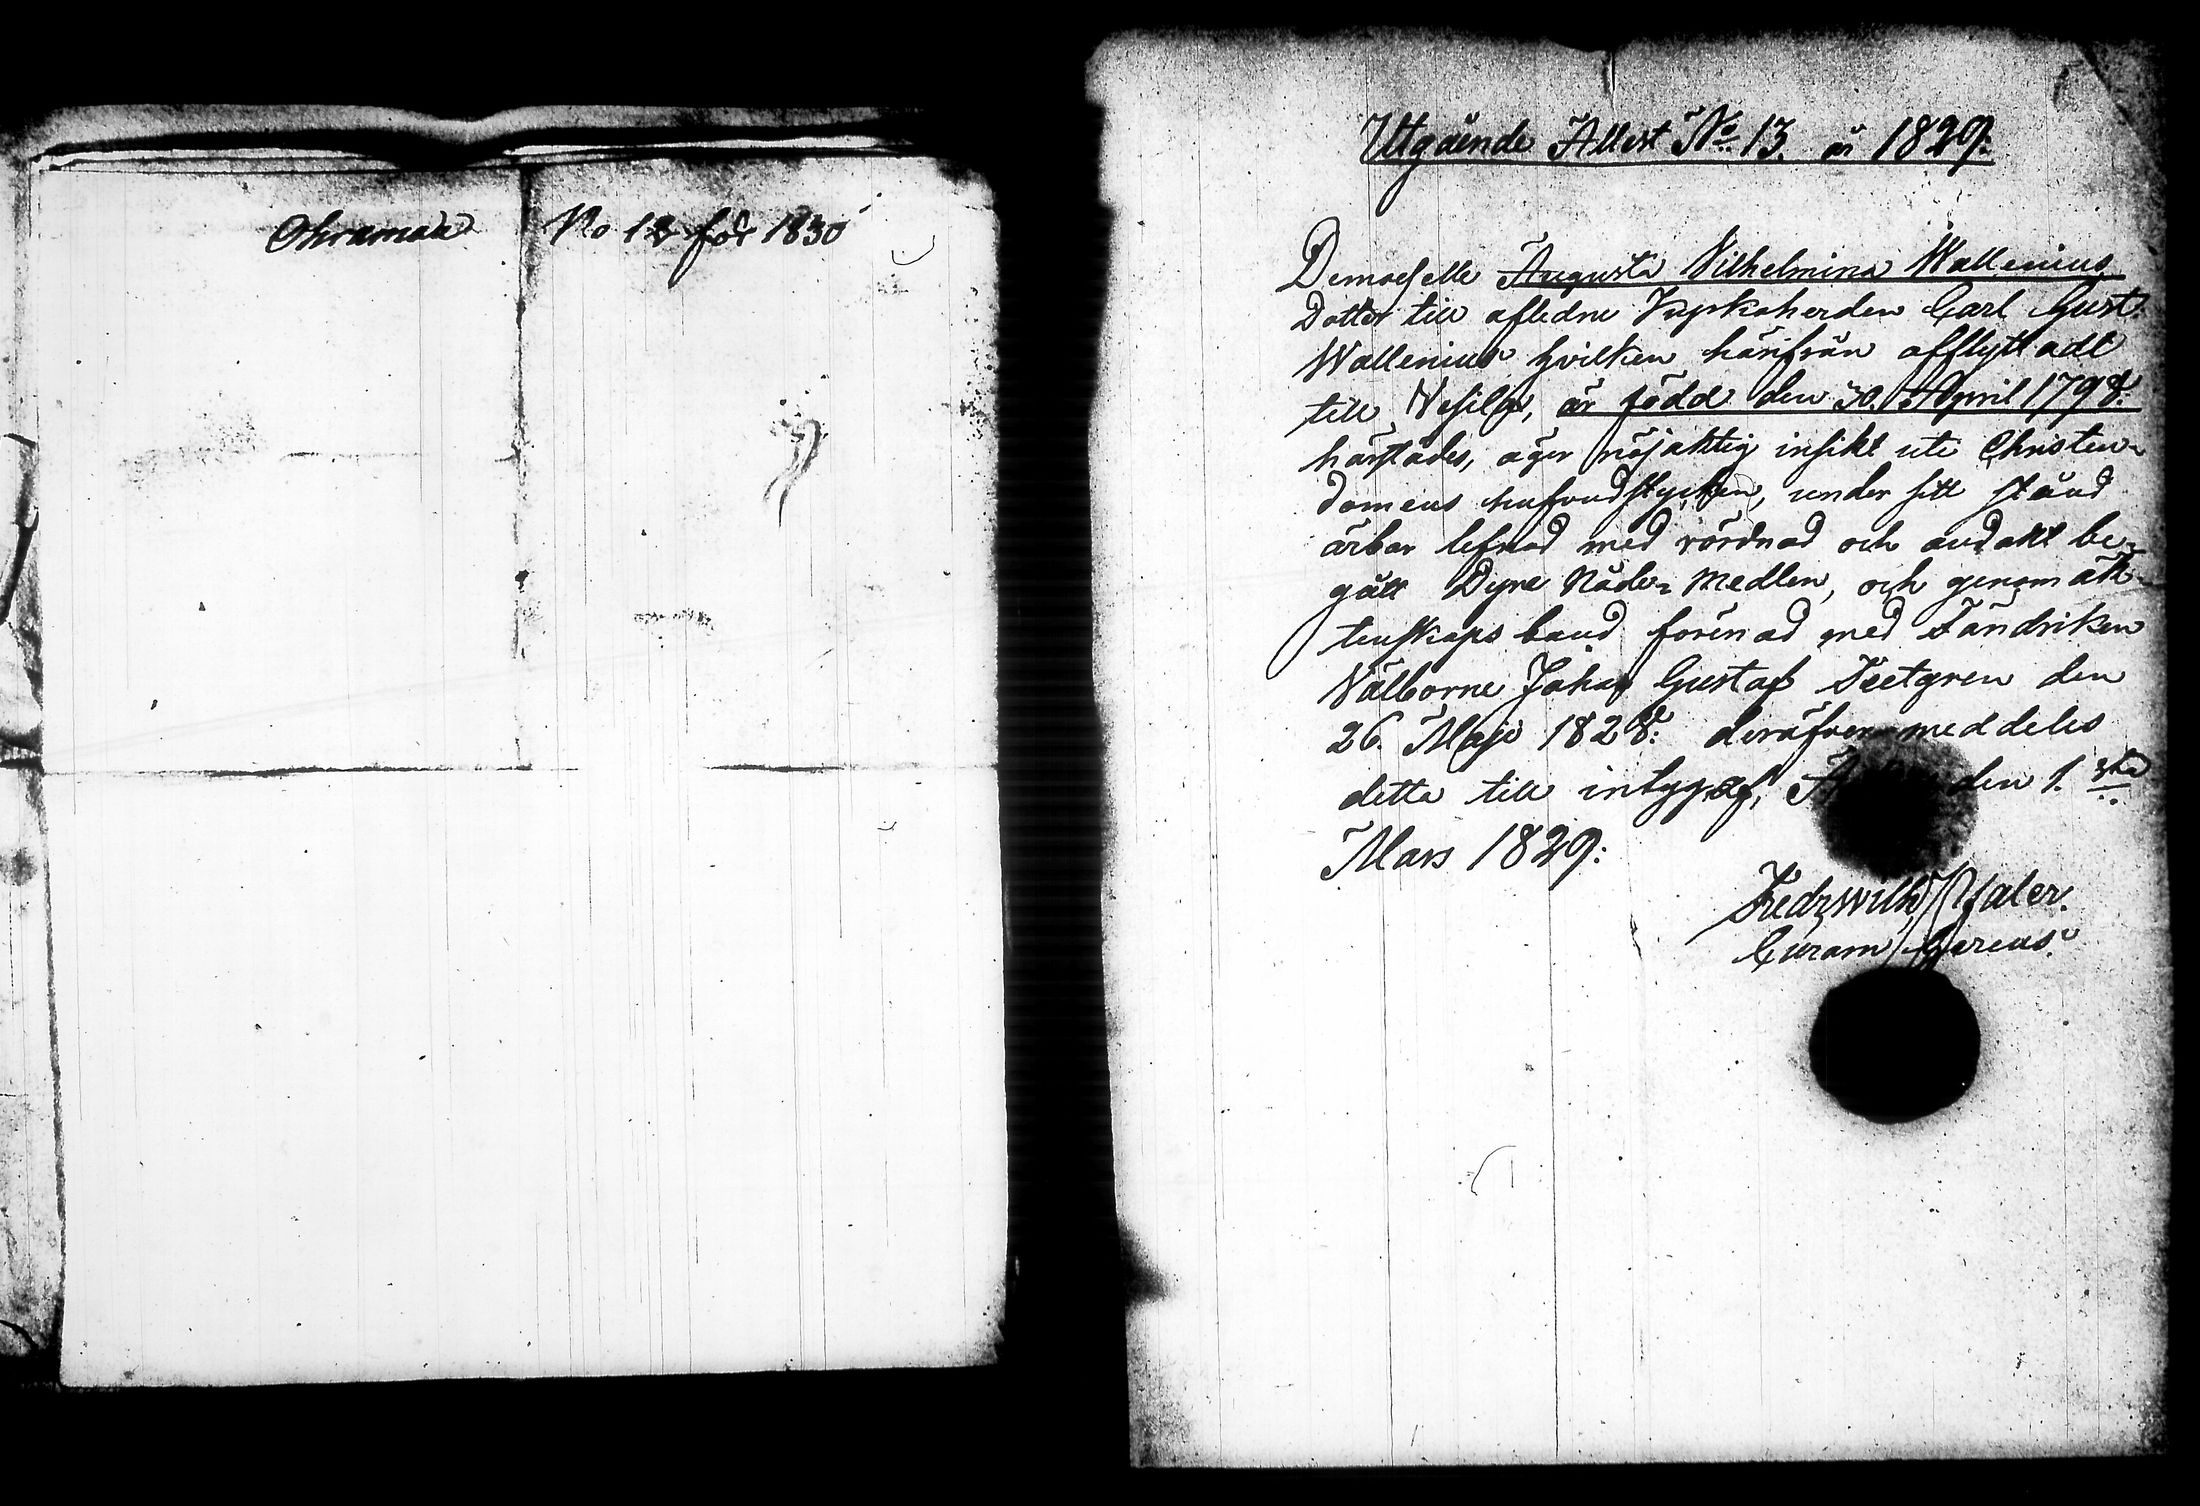 Ohramaa No 12 för 1830
Utgående Attest No. 13. år 1829.
Demoiselle Augusta Vilhelmina Wallenius
Dotter till afledne Kyrkoherden Carl Gust:
Wallenius hvilken härifrån afflyttadt
till är född den 30. April 1798:
härstädes, äger nöjaktig insikt uti Christen-
domens hufvudstycken, under sitt stånd
ärbar lefnad med vördnad och andakt be-
gått Dyre Nåde-Medlen, och genom äk-
tenskaps band förenad med Fändriken
Välborne Johan Gustaf den
26. Maji 1828: deröfver meddeles
detta till intyg af, den 1. sta
Mars 1829:
Fredr Wilh
Curam Gerens.